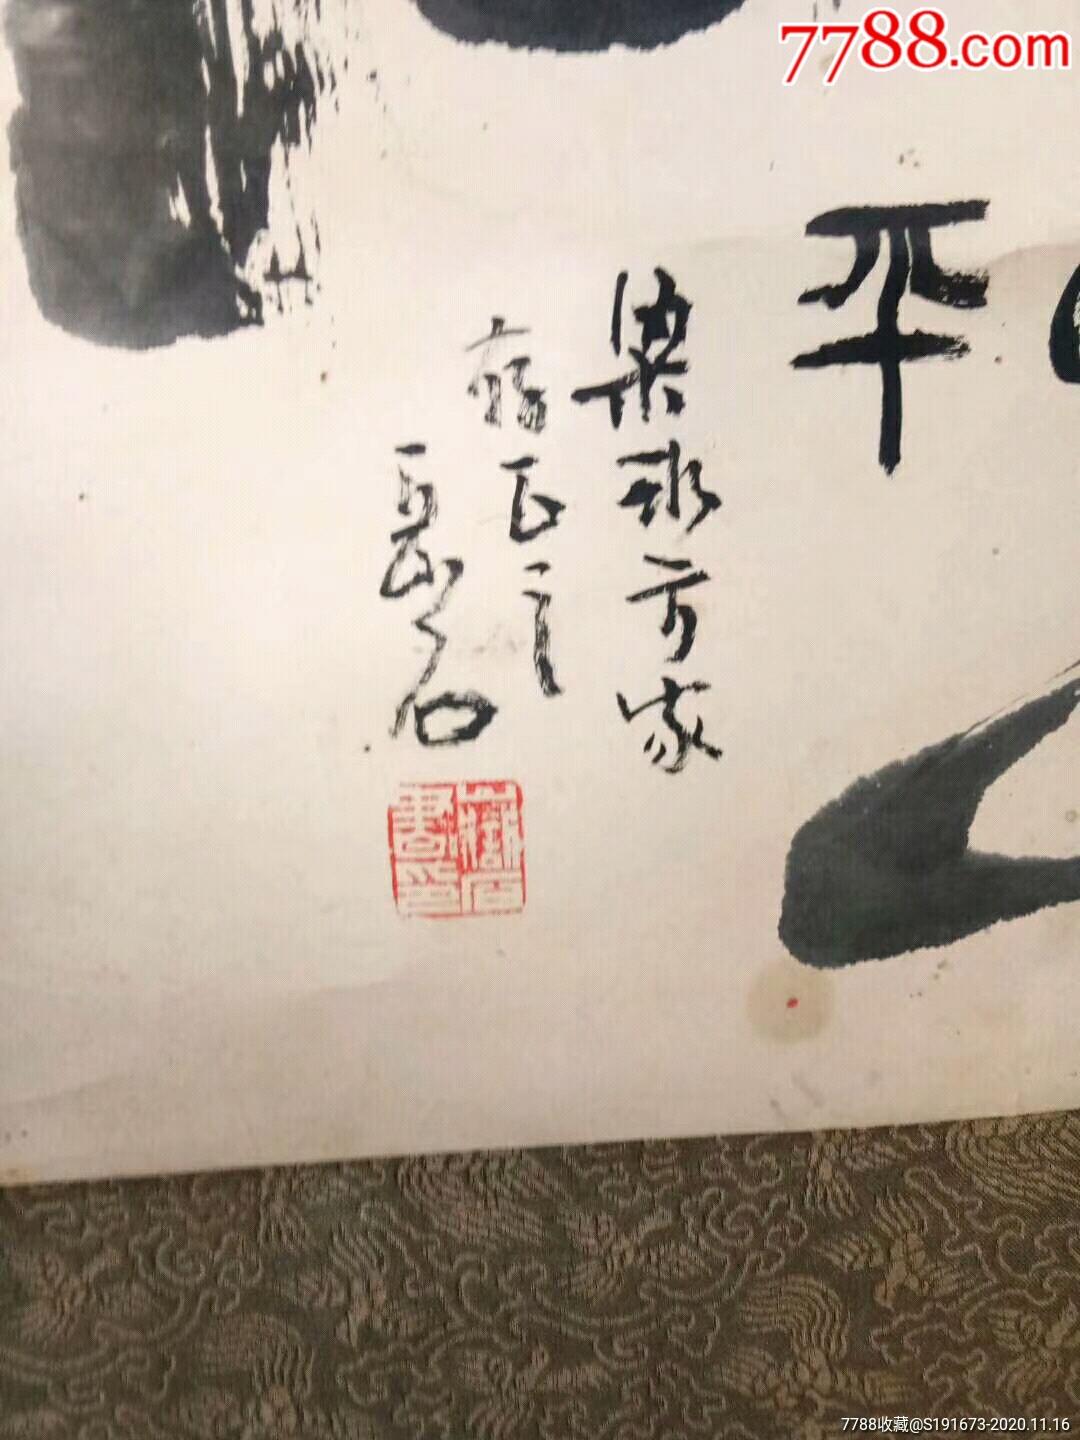 7788.com
平
梁永方家
正之
岳石
嶽石
書印
7788收藏@S191673-2020.11.16